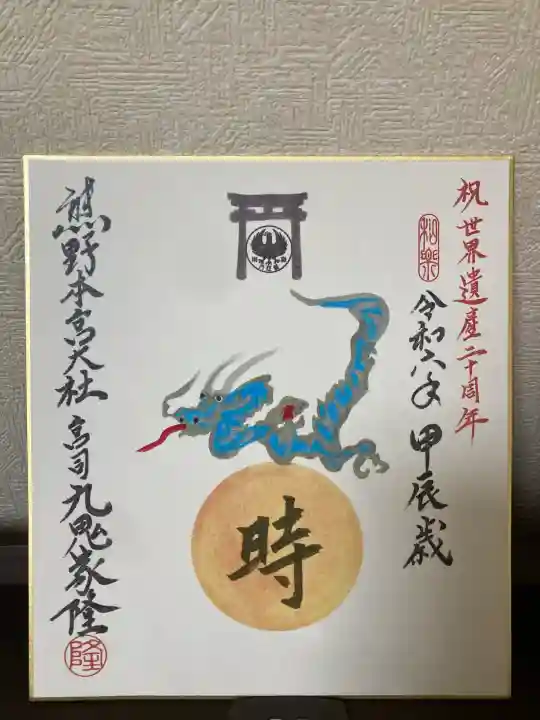 祝世界遺産二十周年
和樂
令和六年 甲辰歳
時
熊野本宮大社 宮司 九鬼家隆
隆